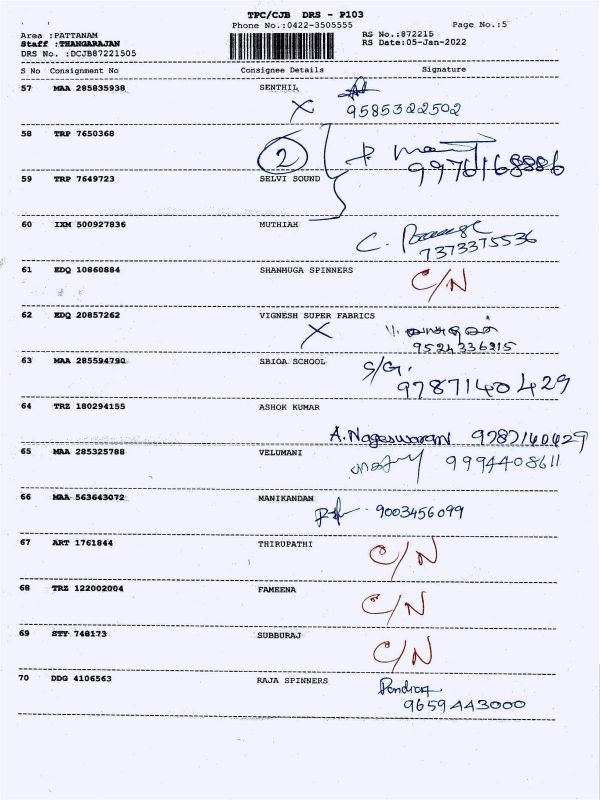 TPC/CJB DRS - P103
Phone No.:0422-3505555 Page No.:5
Area :PATTANAM RS No.:872215
Staff :THANGARAJAN RS Date:05-Jan-2022
DRS No. :DCJB87221505
S No Consignment No Consignee Details Signature
57 MAA 285835938 SENTHIL
X 9585322502
58 TRP 7650368
2 9976168886
59 TRP 7649723 SELVI SOUND
60 IXM 500927836 MUTHIAH
C.
7373375536
61 EDQ 10860884 SHANMUGA SPINNERS
C/N
62 EDQ 20857262 VIGNESH SUPER FABRICS
X
9524336215
63 MAA 285594790 SBIOA SCHOOL
S/G.
9787140429
64 TRZ 180294155 ASHOK KUMAR
A.Nageswaran 9787140429
65 MAA 285325788 VELUMANI
9994408611
66 MAA 563643072 MANIKANDAN
9003456099
67 ART 1761844 THIRUPATHI
C/N
68 TRZ 122002004 FAMEENA
C/N
69 STT 748173 SUBBURAJ
C/N
70 DDG 4106563 RAJA SPINNERS
9659443000